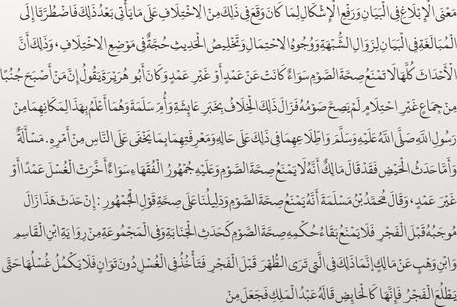 مَعْنَى الْإِبْلَاغِ فِي الْبَيَانِ وَرَفْعِ الْإِشْكَالِ لِمَا كَانَ وَقَعَ فِي ذَلِكَ مِنْ الِاخْتِلَافِ عَلَى مَا يَأْتِي بَعْدَ ذَلِكَ فَاضْطُرَّنَا إِلَى
الْمُبَالَغَةِ فِي الْبَيَانِ لِزَوَالِ الشُّبْهَةِ وَوُجُوهِ الِاحْتِمَالِ وَتَخْلِيصُ الْحَدِيثِ حُجَّةٌ فِي مَوْضِعِ الِاخْتِلَافِ، وَذَلِكَ أَنَّ
الْأَحْدَاثَ كُلَّهَا لَا تَمْنَعُ صِحَّةَ الصَّوْمِ سَوَاءٌ كَانَتْ عَنْ عَمْدٍ أَوْ غَيْرِ عَمْدٍ وَكَانَ أَبُو هُرَيْرَةَ يَقُولُ إِنَّ مَنْ أَصْبَحَ جُنُبًا
مِنْ جِمَاعٍ غَيْرِ احْتِلَامٍ لَمْ يَصِحَّ صَوْمُهُ فَزَالَ ذَلِكَ الْخِلَافُ بِخَبَرِ عَائِشَةَ وَأُمِّ سَلَمَةَ وَهُمَا أَعْلَمُ بِهَذَا لِمَكَانِهِمَا مِنْ
رَسُولِ اللَّهِ صَلَّى اللَّهُ عَلَيْهِ وَسَلَّمَ وَاطِّلَاعِهِمَا فِي ذَلِكَ عَلَى حَالِهِ وَمَعْرِفَتِهِمَا بِمَا يَخْفَى عَلَى النَّاسِ مِنْ أَمْرِهِ. مَسْأَلَةٌ
وَأَمَّا حَدَثُ الْحَيْضِ فَقَدْ قَالَ مَالِكٌ أَنَّهُ لَا يَمْنَعُ صِحَّةَ الصَّوْمِ وَعَلَيْهِ جُمْهُورُ الْفُقَهَاءِ سَوَاءٌ أَخَّرَتْ الْغُسْلَ عَمْدًا أَوْ
غَيْرَ عَمْدٍ، وَقَالَ مُحَمَّدُ بْنُ مَسْلَمَةَ أَنَّهُ يَمْنَعُ صِحَّةَ الصَّوْمِ وَدَلِيلُنَا عَلَى صِحَّةِ قَوْلِ الْجُمْهُورِ: إِنَّ حَدَثَ هَذَا زَالَ
مُوجَبُهُ قَبْلَ الْفَجْرِ فَلَا يَمْنَعُ بَقَاءُ حُكْمِهِ صِحَّةَ الصَّوْمِ كَحَدَثِ الْجَنَابَةِ وَفِي الْمَجْمُوعَةِ مِنْ رِوَايَةِ ابْنِ الْقَاسِمِ
وَابْنِ وَهْبٍ عَنْ مَالِكٍ إِنَّمَا ذَلِكَ فِي الَّتِي تَرَى الطُّهْرَ قَبْلَ الْفَجْرِ فَتَأْخُذُ فِي الْغُسْلِ دُونَ تَوَانٍ فَلَا يَكْمُلُ غُسْلُهَا حَتَّى
يَطْلُعَ الْفَجْرُ فَإِنَّهَا كَالْحَائِضِ قَالَهُ عَبْدُ الْمَلِكِ فَجَعَلَ مِنْ